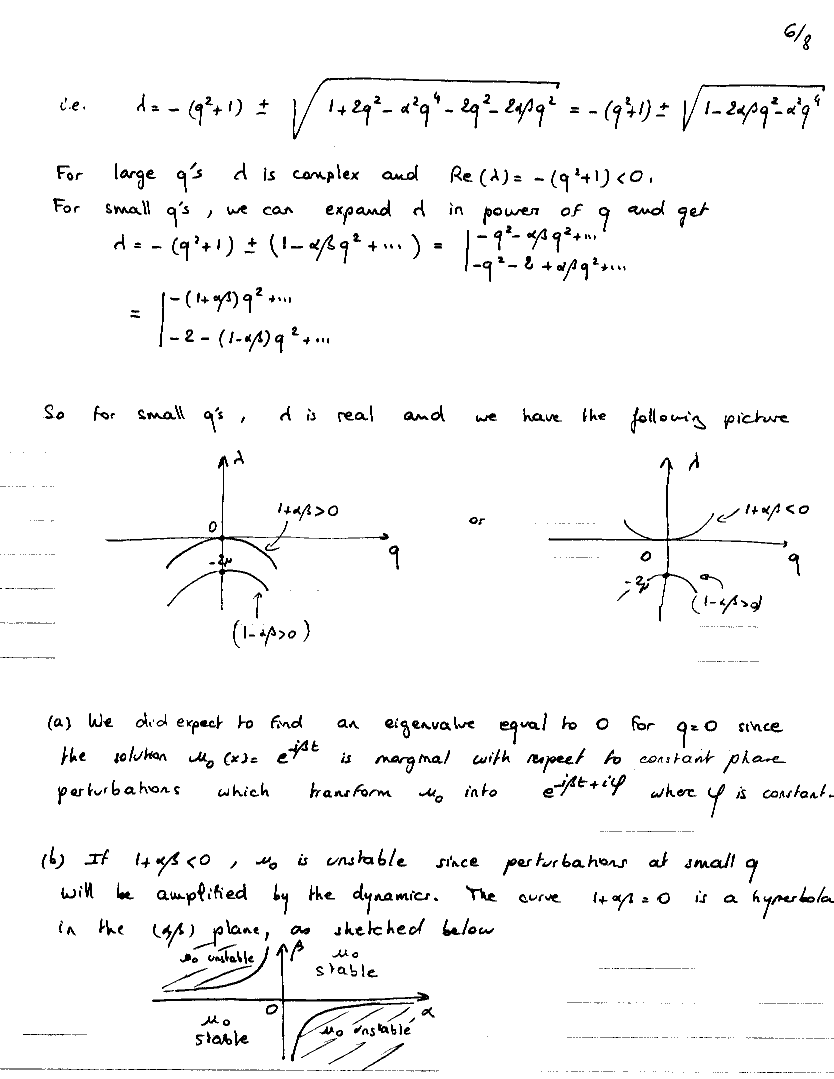 6/8
i.e. λ = - (q²+1) ± √(1+2q²-α²q⁴-2q²-2αβq²) = - (q²+1) ± √(1-2αβq²-α²q⁴)
For large q's λ is complex and Re(λ) = - (q²+1) < 0.
For small q's, we can expand λ in power of q and get
λ = - (q²+1) ± (1-αβq²+...) = | -q²-αβq²+...
| -q²-2+αβq²+...
= | -(1+αβ)q²+...
| -2-(1-αβ)q²+...
So for small q's, λ is real and we have the following picture
λ
1+αβ>0
0
q
-2μ
(1-αβ>0)
or
λ
1+αβ<0
0
q
-2μ
(1-αβ>0)
(a) We did expect to find an eigenvalue equal to 0 for q=0 since
the solution u₀(x)= e^-iβt is marginal with respect to constant phase
perturbations which transform u₀ into e^-iβt+iφ where φ is constant.
(b) If 1+αβ<0, u₀ is unstable since perturbations at small q
will be amplified by the dynamics. The curve 1+αβ=0 is a hyperbola
in the (αβ) plane, as sketched below
u₀ unstable
β
u₀
stable
0
α
u₀
stable
u₀ unstable